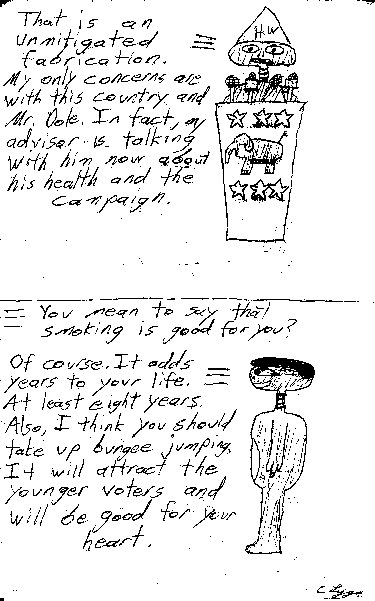 That is an
unmitigated
fabrication.
My only concerns are
with this country and
Mr. Dole. In fact, my
advisor is talking
with him now about
his health and the
campaign.
H.W
You mean to say that
smoking is good for you?
Of course. It adds
years to your life.
At least eight years.
Also, I think you should
take up bungee jumping.
It will attract the
younger voters and
will be good for your
heart.